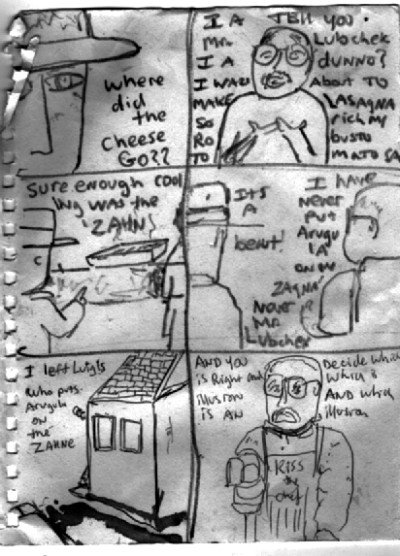 where
did
the
cheese
GO??
I A TELL YOU.
Mr. Lubchek
I A DUNNO?
I WAS About TO
MAKE LASAGNA
So rich my
RO busto
TO MATO SA
Sure enough cool
ing was the
'ZAHN
ITS
A
beaut!
I HAVE
Never
PUT
Arugu
LA
ZAGNA
Mr.
Lubchek
I left Luigis
who puts
Arugula
ON
the
ZAHNE
AND YOU Decide which
is Right and which is
illusion AND which
is AN illusion
Kiss
the
chef